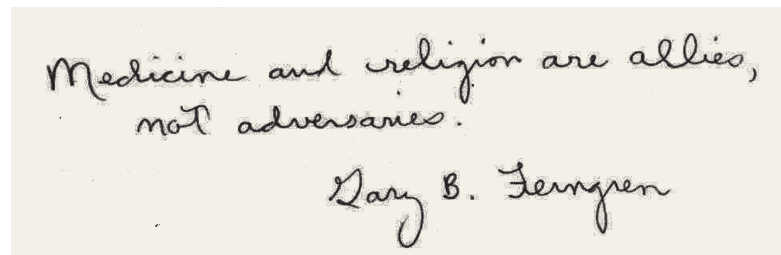 Medicine and religion are allies,
not adversaries.
Gary B. Ferngren